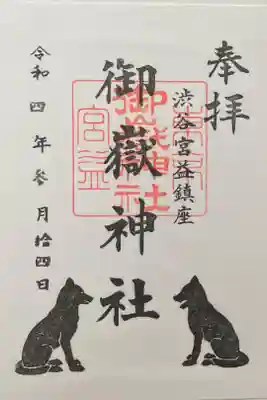 奉拝
渋谷宮益鎮座
御嶽神社
令和四年参月拾四日
宮益
御嶽神社